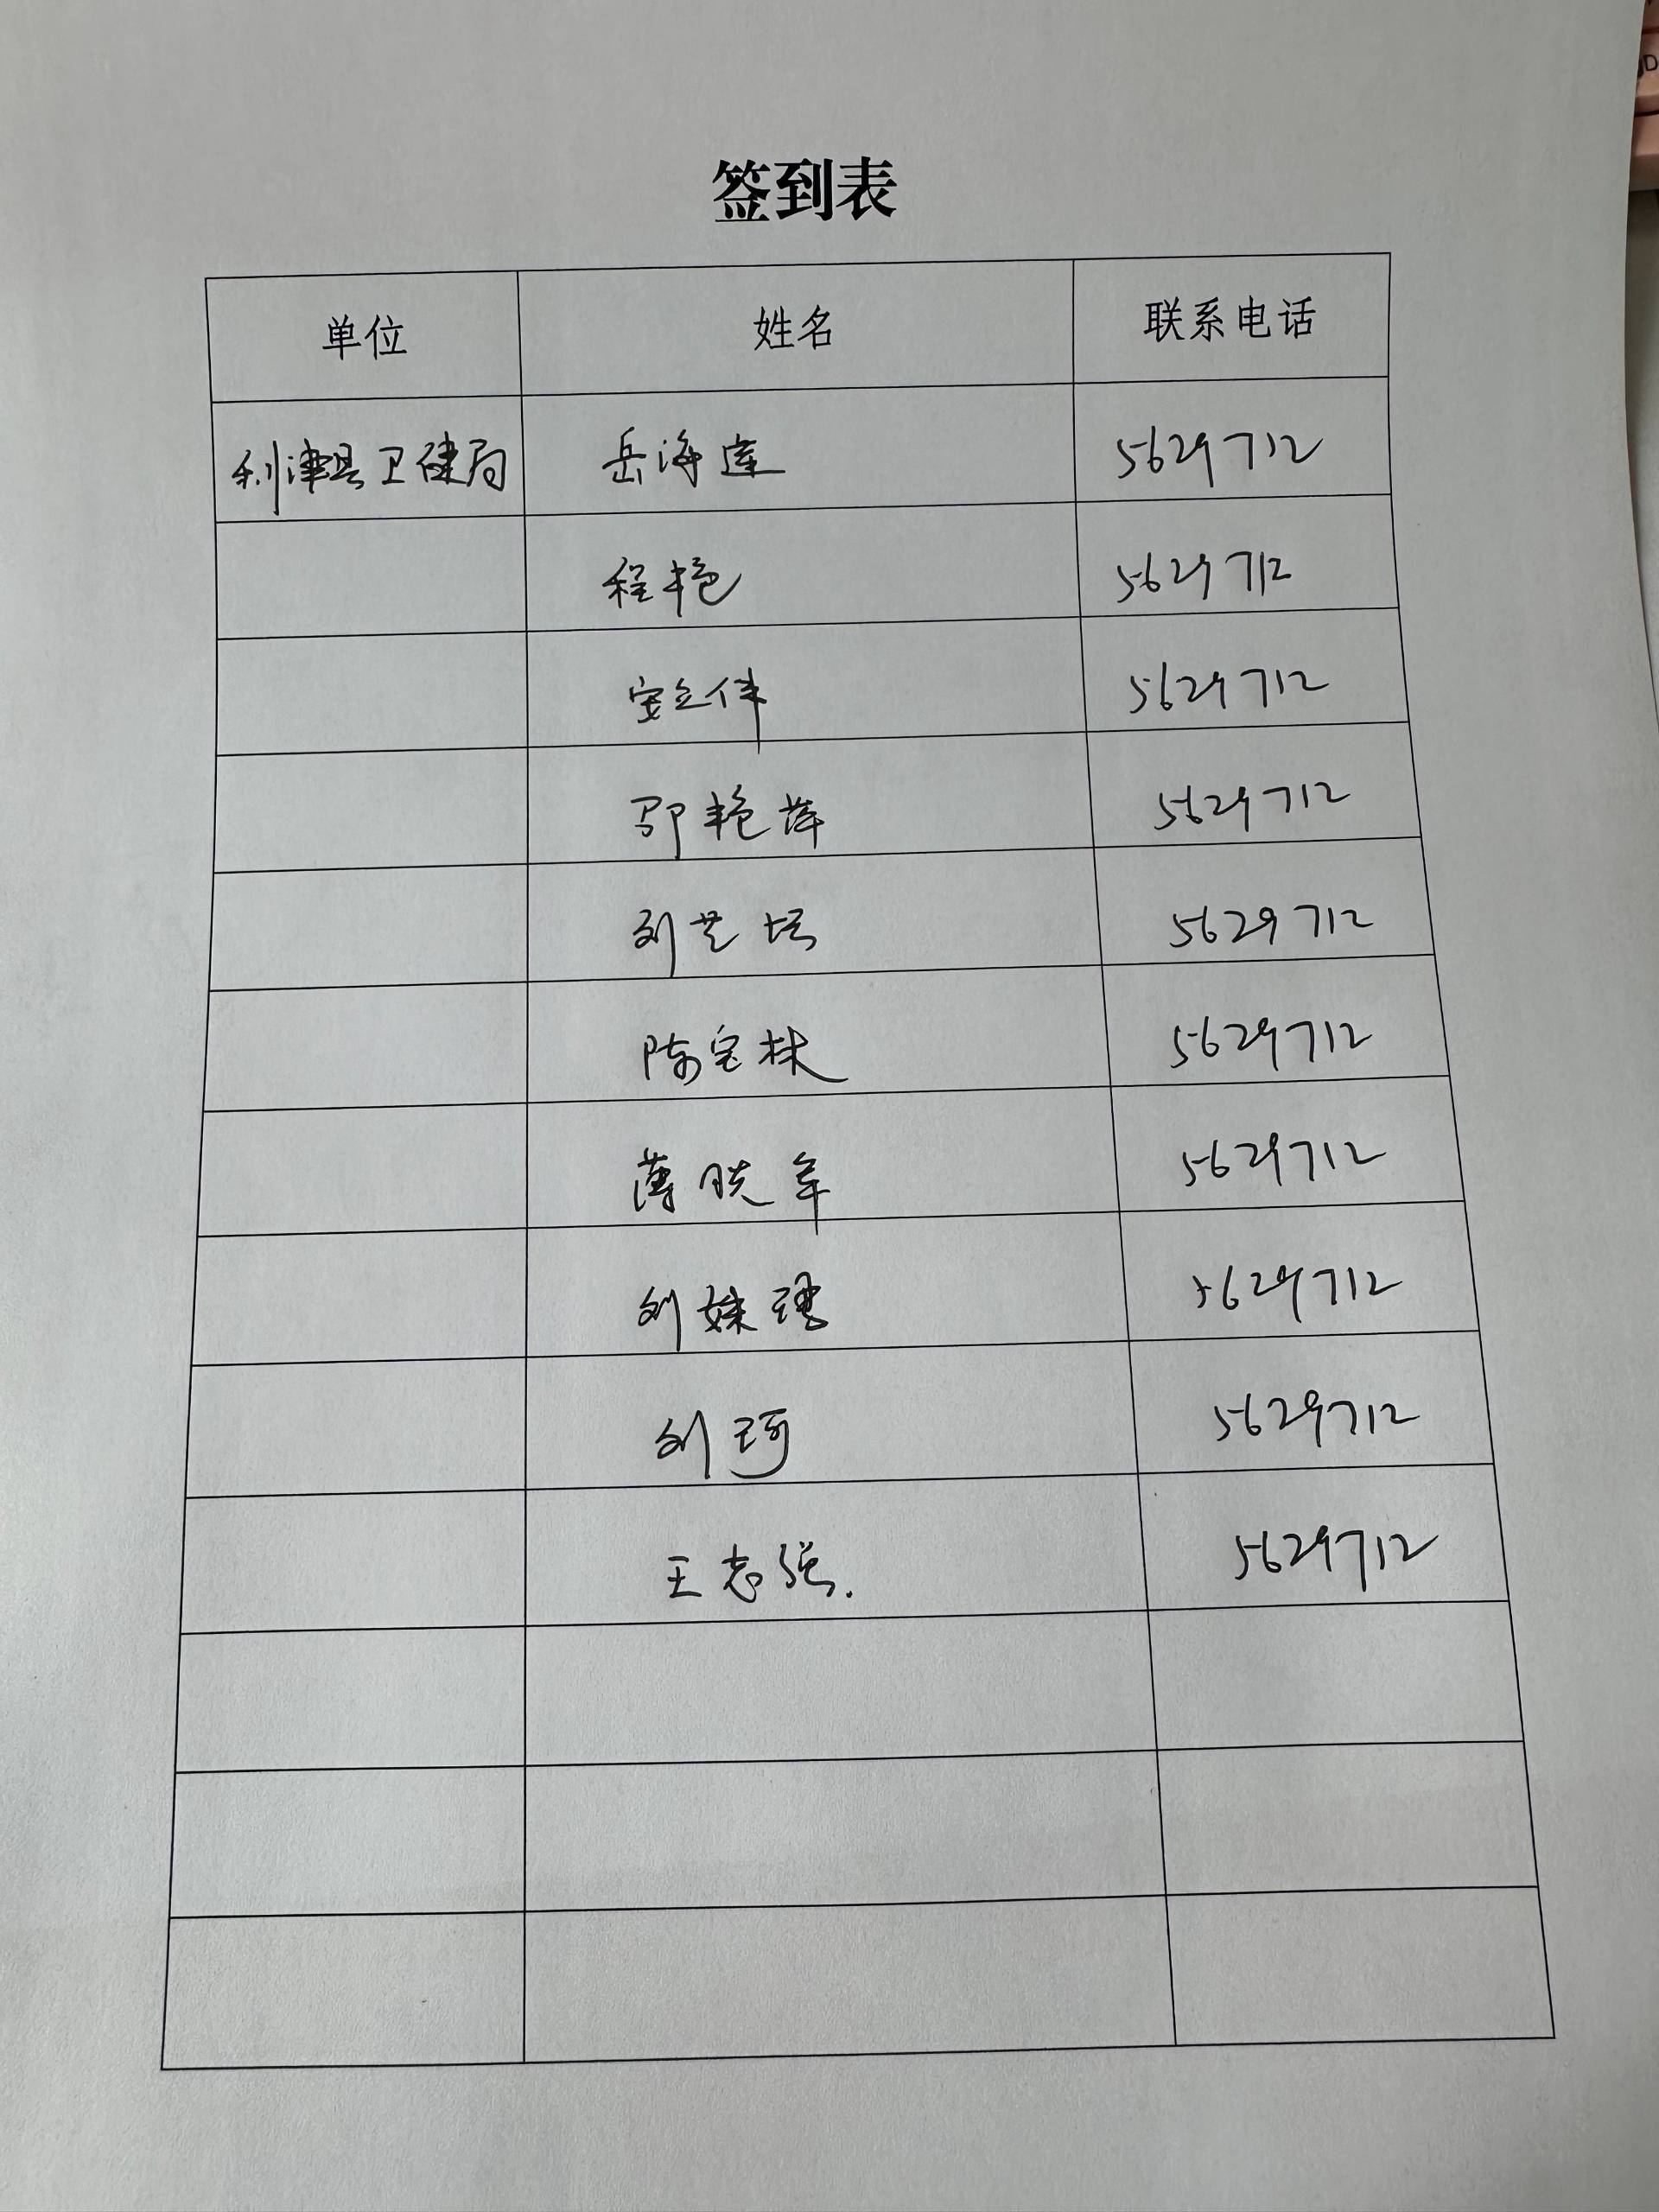 签到表
单位 姓名 联系电话
利津县卫健局 岳海莲 5629712
程艳 5629712
安立伟 5629712
邵艳萍 5629712
刘芝坛 5629712
陈宝林 5629712
薄晓军 5629712
刘姝 5629712
刘珂 5629712
王志强. 5629712